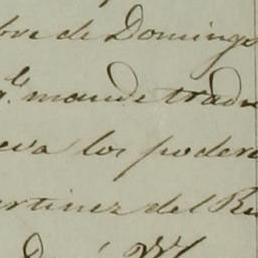 bre de Domingo
q.e mande tradu
eva los podere
artinez del Re